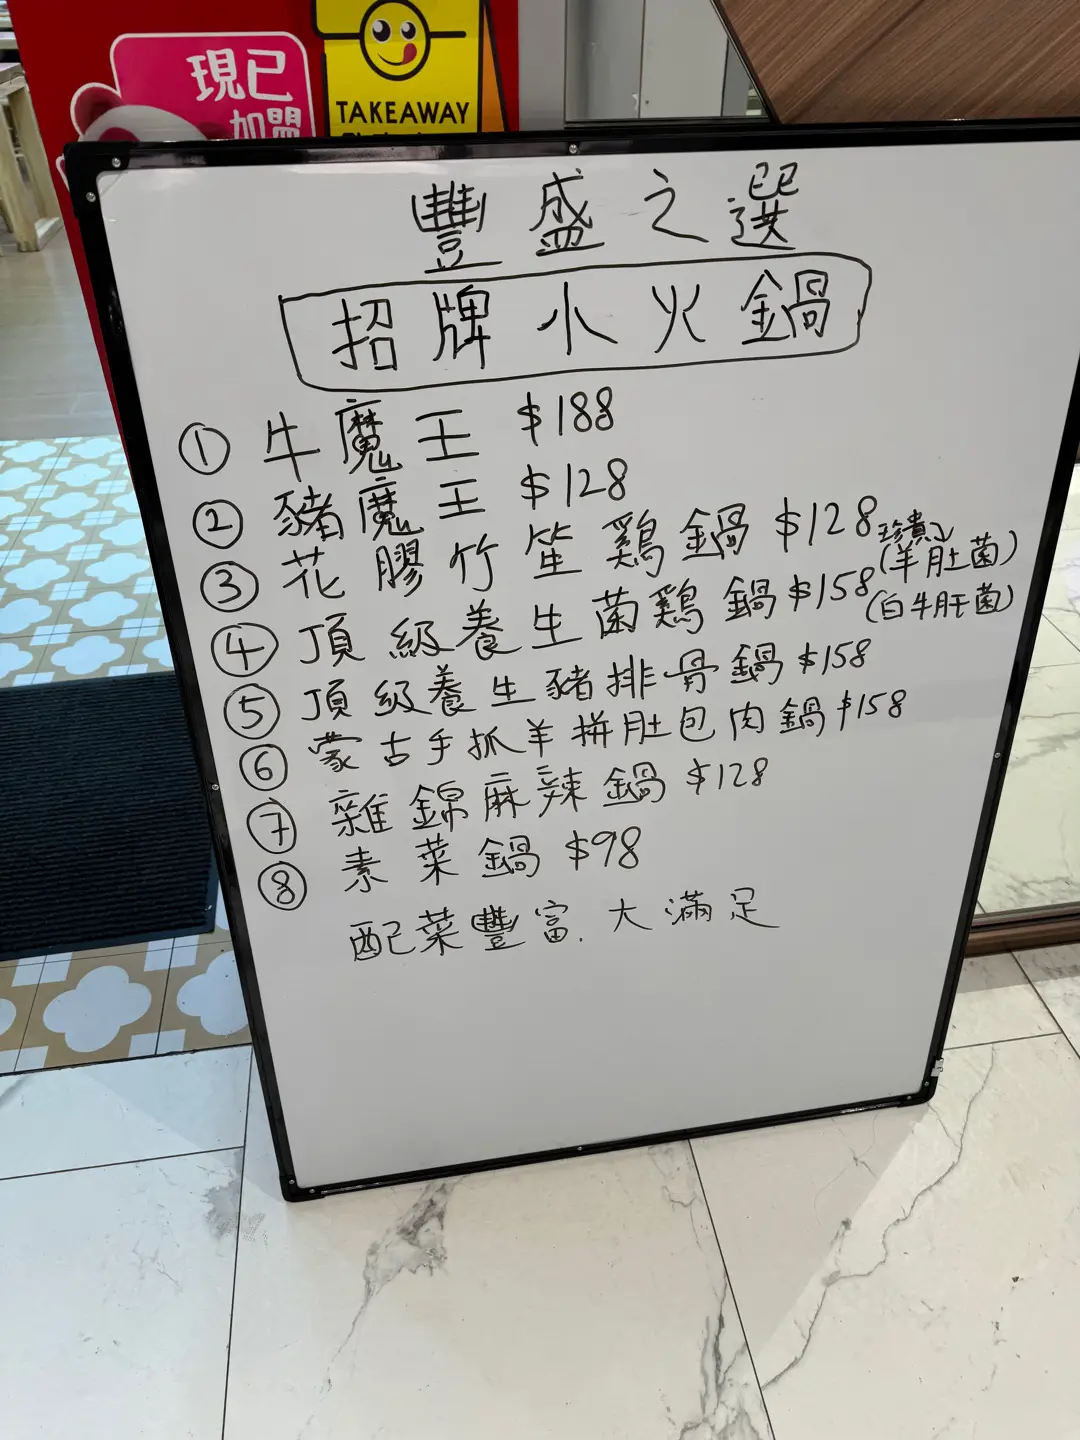 現已
加盟
TAKEAWAY
豐盛之選
招牌小火鍋
① 牛魔王 $188
② 豬魔王 $128
③ 花膠竹笙鷄鍋 $128
④ 頂級養生菌鷄鍋 $158 珍貴(羊肚菌)(白牛肝菌)
⑤ 頂級養生豬排骨鍋 $158
⑥ 蒙古手抓羊拼肚包肉鍋 $158
⑦ 雜錦麻辣鍋 $128
⑧ 素菜鍋 $98
配菜豐富.大滿足